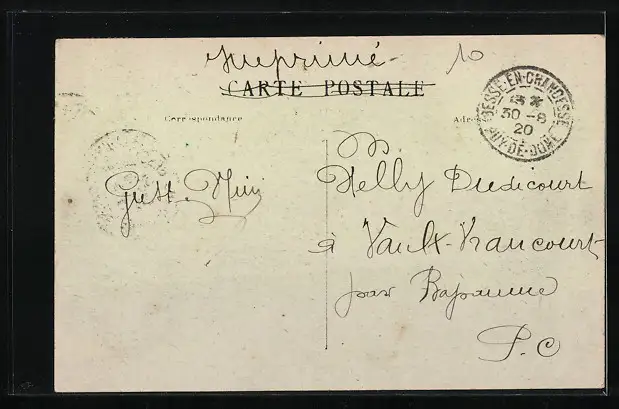 Imprimé - 10
CARTE POSTALE
Correspondance
Adresse
BESSE-EN-CHANDESSE
30 -8
20
PUY-DE-DOME
M.
Nelly Dudicourt
à Vaulx-Vraucourt
par Bapaume
P. C